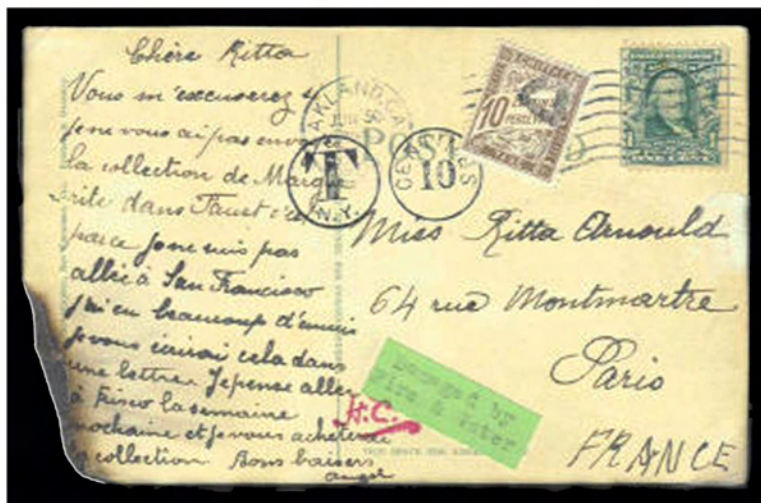 Chère Ritta
Vous m'excuserez si
je ne vous ai pas envoyé
la collection de Margue
rite dans Faust c'est
parce je ne suis pas
allée à San Francisco
j'ai eu beaucoup d'ennuis
je vous écrirai cela dans
une lettre. Je pense aller
à Frisco la semaine
prochaine et je vous achèterai
la collection Bons baisers
OAKLAND, CA
T
N.Y.
CENTIMES
10
10
ONE CENT
Miss Ritta Arnould
64 rue Montmartre
Paris
FRANCE
Damaged by
Fire & Water
H.C.